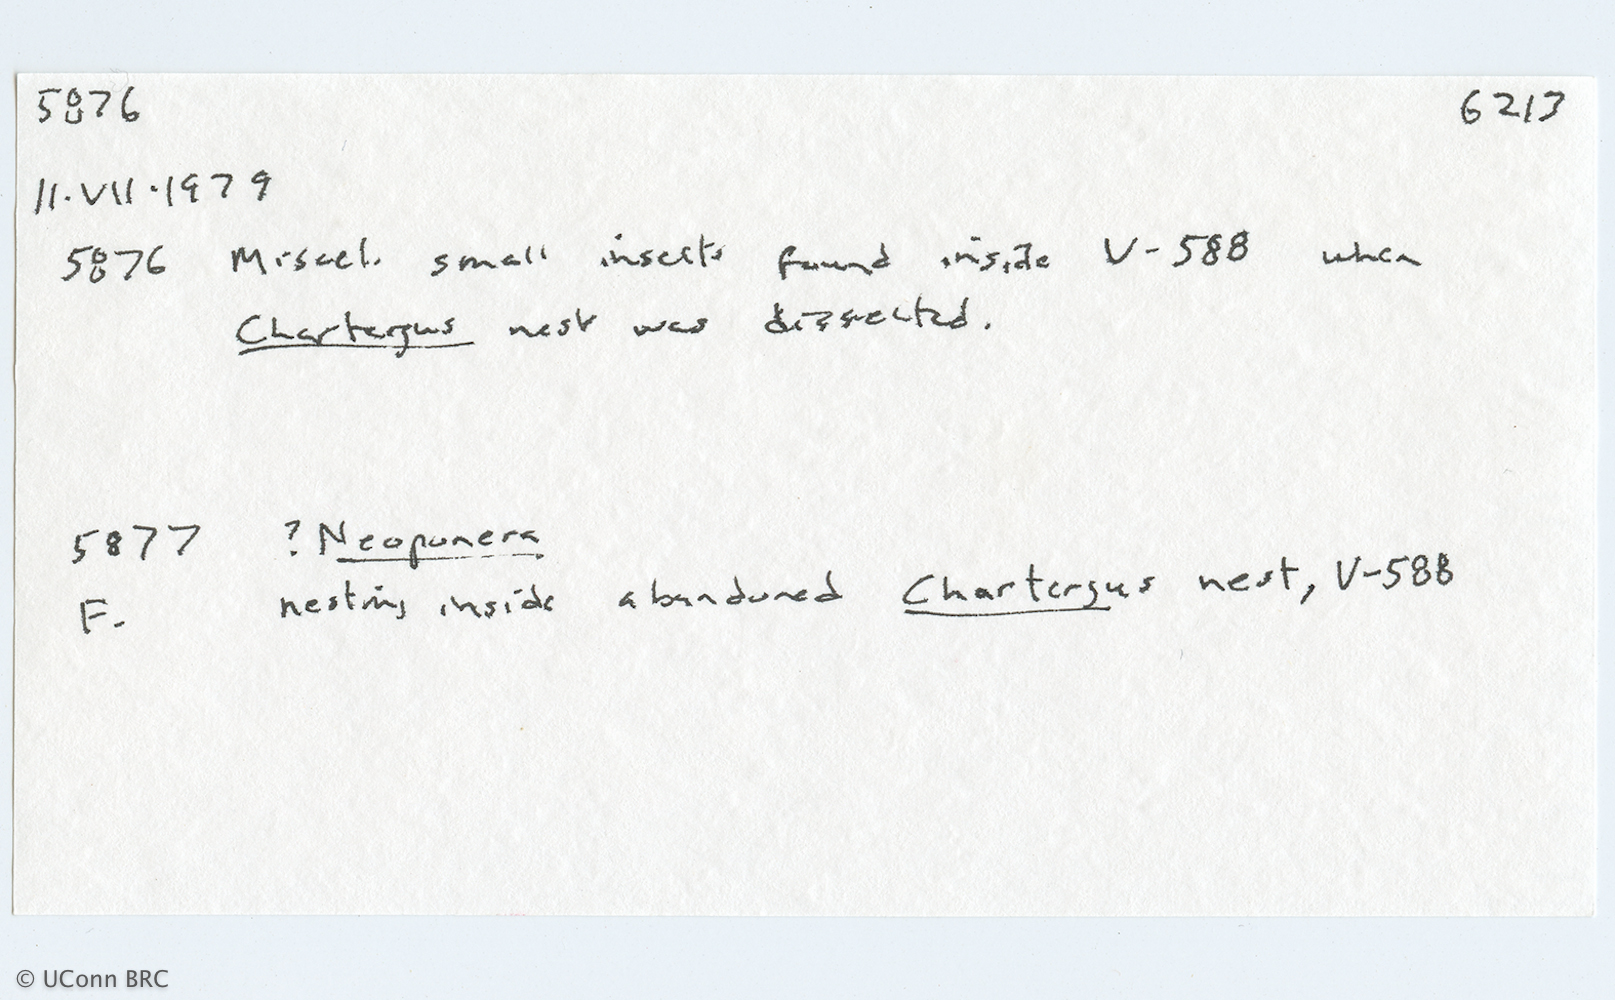 5876 6213
11.VII.1979
5876 Miscel. small insects found inside V-588 when
Chartergus nest was dissected.
5877 ?Neoponera
F. nesting inside abandoned Chartergus nest, V-588
© UConn BRC